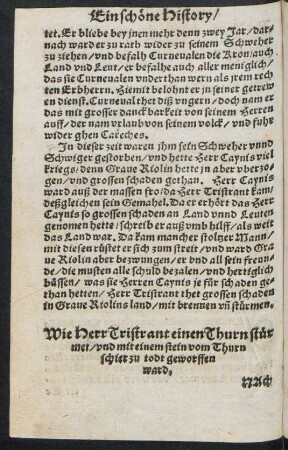 Ein schöne History/
tet. Er bliebe bey jnen mehr denn zwey Jar/ dar-
nach ward er zu rath wider zu seinem Schweher
zu ziehen/ vnd befalh Curneualen die Kron/ auch
Land vnd Leut/ er befalhe auch aller meniglich/
das sie Curneualen vnderthan wern als jrem rech
ten Erbherrn. Hiemit belohnet er jn seiner getrew
en dienst. Curneual thet diß vngern/ doch nam er
das mit grosser danckbarkeit von seinem Herren
auff/ der nam vrlaub von seinem volck/ vnd fuhr
wider ghen Careches.
In dieser zeit waren jhn sein Schweher vnnd
Schwiger gestorben/ vnd hette Herr Caynis viel
kriegs/ denn Graue Riolin hette jn aber vberzo-
gen/ vnd grossen schaden gethan. Herr Caynis
ward auß der massen fro/ da Herr Tristrant kam/
deßgleichen sein Gemahel. Da er erhört das Herr
Caynis so grossen schaden an Land vnnd Leuten
genomen hette/ schreib er auß vmb hilff/ als weit
das Land war. Da kam mancher stoltzer Mann/
mit diesen rüstet er sich zum streit/ vnd ward Gra
ue Riolin aber bezwungen/ er vnd all sein freun-
de/ die musten alle schuld bezalen/ vnd hertiglich
büssen/ was sie Herren Caynis je für schaden ge-
than hetten/ Herr Tristrant thet grossen schaden
in Graue Riolins land/ mit brennen vñ stürmen.
Wie Herr Tristrant einen Thurn stür
met/ vnd mit einem stein vom Thurn
schier zu todt geworffen
ward.
Nach